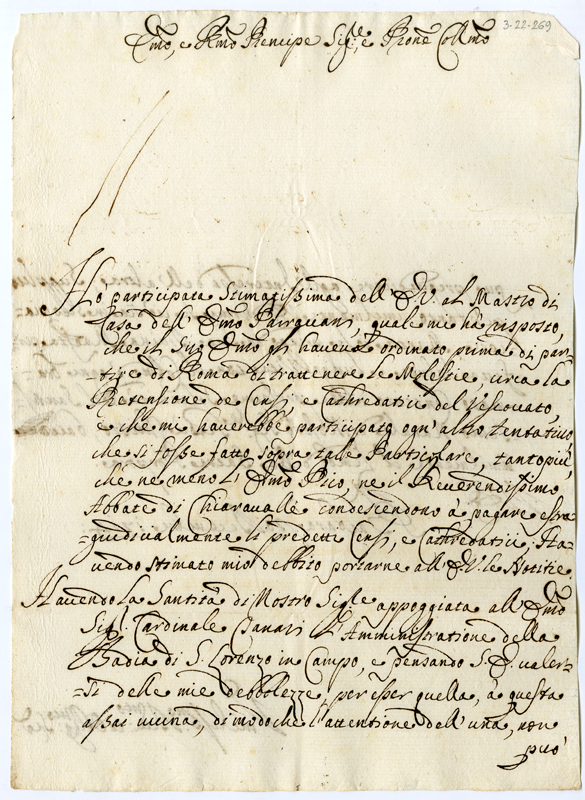 3-22-269
Emo, e Rmo Prencipe Sigre, e Prone Collmo
Ho participata Stimatissima dell' E.V. al Mastro di
Casa dell' Emo, quale mi hà risposto,
che il Suo Emo gli haveva ordinato prima di par-
-tire di Roma di trattenere le Molestie, circa la
Pretensione de Censi, e Cathredatici del Vescovato,
e che mi haverebbe participato ogn' altro tentativo
che si fosse fatto sopra tale Particolare, tanto più,
che ne meno l' Emo Pico, ne il Reverendissimo
Abbate di Chiaravalle condescendono à pagare estra-
-giudicialmente li predetti Censi, e Cathredatici; Ha-
vendo stimato mio debbito portarne all' E.V. le Notitie.
Havendo la Santità di Nostro Sigre appoggiata all' Emo
Sigr. Cardinale l'Amministratione della
Badia di S. Lorenzo in Campo, e pensando S. E. valer-
-si delle mie debbolezze, per esser quella, à questa
assai vicina, di modo che l'attentione dell' una, non
può